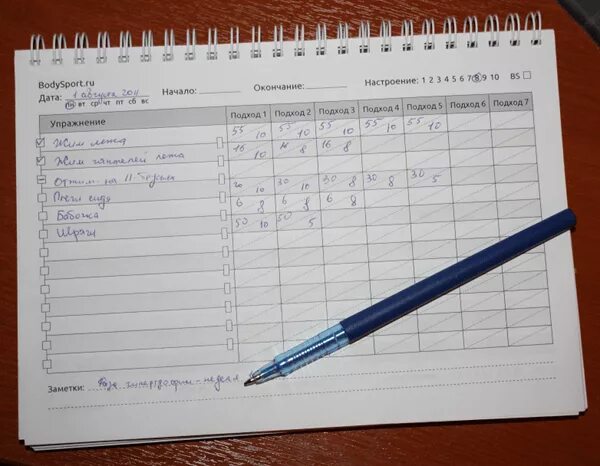 BodySport.ru
Дата: 1 августа 2011 Начало: Окончание: Настроение: 1 2 3 4 5 6 7 8 9 10 BS
пн вт ср чт пт сб вс
Упражнение Подход 1 Подход 2 Подход 3 Подход 4 Подход 5 Подход 6 Подход 7
Жим лежа 55 10 55 10 55 10 55 10 55 10
Жим гантелей лежа 16 10 16 8 16 8
Отжим. на
сидя 30 10 30 10 30 8 30 8 30 5
Бабочка 6 8 6 8 6 8
Шраги 50 10 50 5
Заметки: Фаза гипертрофии - неделя